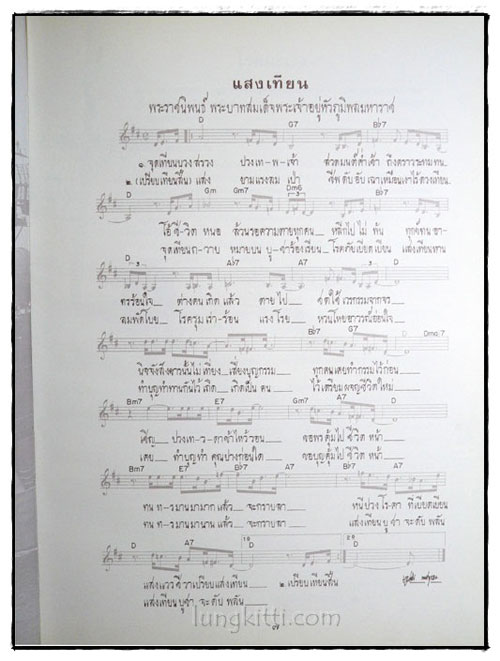 แสงเทียน
พระราชนิพนธ์ พระบาทสมเด็จพระเจ้าอยู่หัวภูมิพลมหาราช
D G7 B♭7
๑. จุดเทียนบวงสรวง ปวงเท-พ-เจ้า สวดมนต์ค่ำเช้า ถึงคราวระทมทน
๒. (เปรียบเทียนสิ้น) แสง ยามแรงลม เป่า ชีพดับอับเฉาเหมือนเงาไร้ดวงเทียน
D Gm Gm7 Dm6 B♭7 A7
โอ้ชี-วิต หนอ ล้วนรอความตายทุกคน หลีกไป ไม่ พ้น ทุกข์ทน อา-
จุดเทียนถ-วาย หมายบน บู-ชาร้องเรียน โรคภัยเบียดเบียน แสงเทียนทาน
D A♭7 A7 D
ทรร้อนใจ ต่างคนเกิด แล้ว ตายไป ชดใช้เวรกรรมจากจร
ลมพัดโบย โรครุมเร่า-ร้อน แรงโรย หวนโหยอาวรณ์อ่อนใจ
B♭7 G7 D
นิจจังสังขารนั้นไม่เที่ยง เสี่ยงบุญกรรม ทุกคนเคยทำกรรมไว้ก่อน
ทำบุญทำทานกันไว้ เถิด เกิดเป็น คน ไว้เตรียมผจญชีวิตใหม่
Bm7 E7 Gm7 D
เชิญ ปวงเท-วดาข้าไหว้วอน ขอพรคุ้มไปชีวิต หน้า
เคย ทำบุญทำ คุณปางก่อนใด ขอบุญคุ้มไปชีวิต หน้า
Bm7 E7 B♭7 A7 B♭7 A7
ทน ท-รมานมามาก แล้ว จะกราบลา หนีปวงโร-คา ที่เบียดเบียน
ทน ท-รมานมานาน แล้ว จะกราบลา แสงเทียนบูชา จะดับ พลัน
D A7 D D
แสงแวววชีวาเปรียบแสงเทียน ๒. เปรียบเทียนสิ้น
แสงเทียนบูชา, จะดับ พลัน
lungkitti.com